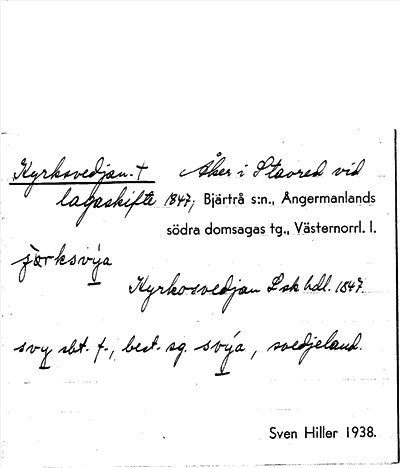 Kyrksvedjan. † Åker i Stavred vid
lagaskifte 1847; Bjärtrå s:n., Ångermanlands
södra domsagas tg., Västernorrl. l.
jörksvý̱a
Kyrkosvedjan Lsk hdl. 1847
svy̱ sbt. f., best. sg. svý̱a, svedjeland.
Sven Hiller 1938.